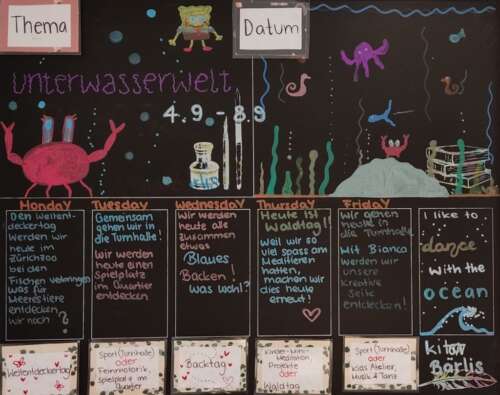 Thema
Datum
Unterwasserwelt
4.9 - 8.9
Monday
Den Weltent-
deckertag
werden wir
heute im
Zürichzoo
bei den
Fischen verbringen
was für
Meerestiere
entdecken
wir noch?
Tuesday
Gemeinsam
gehen wir in
die Turnhalle!
Wir werden
heute einen
Spielplatz
im Quartier
entdecken
Wednesday
Wir werden
heute alle
zusammen
etwas
Blaues
Backen!
was wohl?
Thursday
Heute ist
Waldtag!
weil wir so
viel Spass am
Meditieren
hatten,
machen wir
dies heute
erneut!
Friday
Wir gehen
heute in
die Turnhalle
Mit Bianca
werden wir
unsere
Kreative
Seite
entdecken!
I like to
dance
with the
ocean
Kita
Bärlis
Weltentdeckertag!
Sport (Turnhalle)
oder
Feinmotorik,
Spielplatz im
Quartier
Backtag
Kinder-Mini-
Meditation,
Projekte
oder
Waldtag
Sport (Turnhalle)
oder
Kids Atelier,
Musik & Tanz